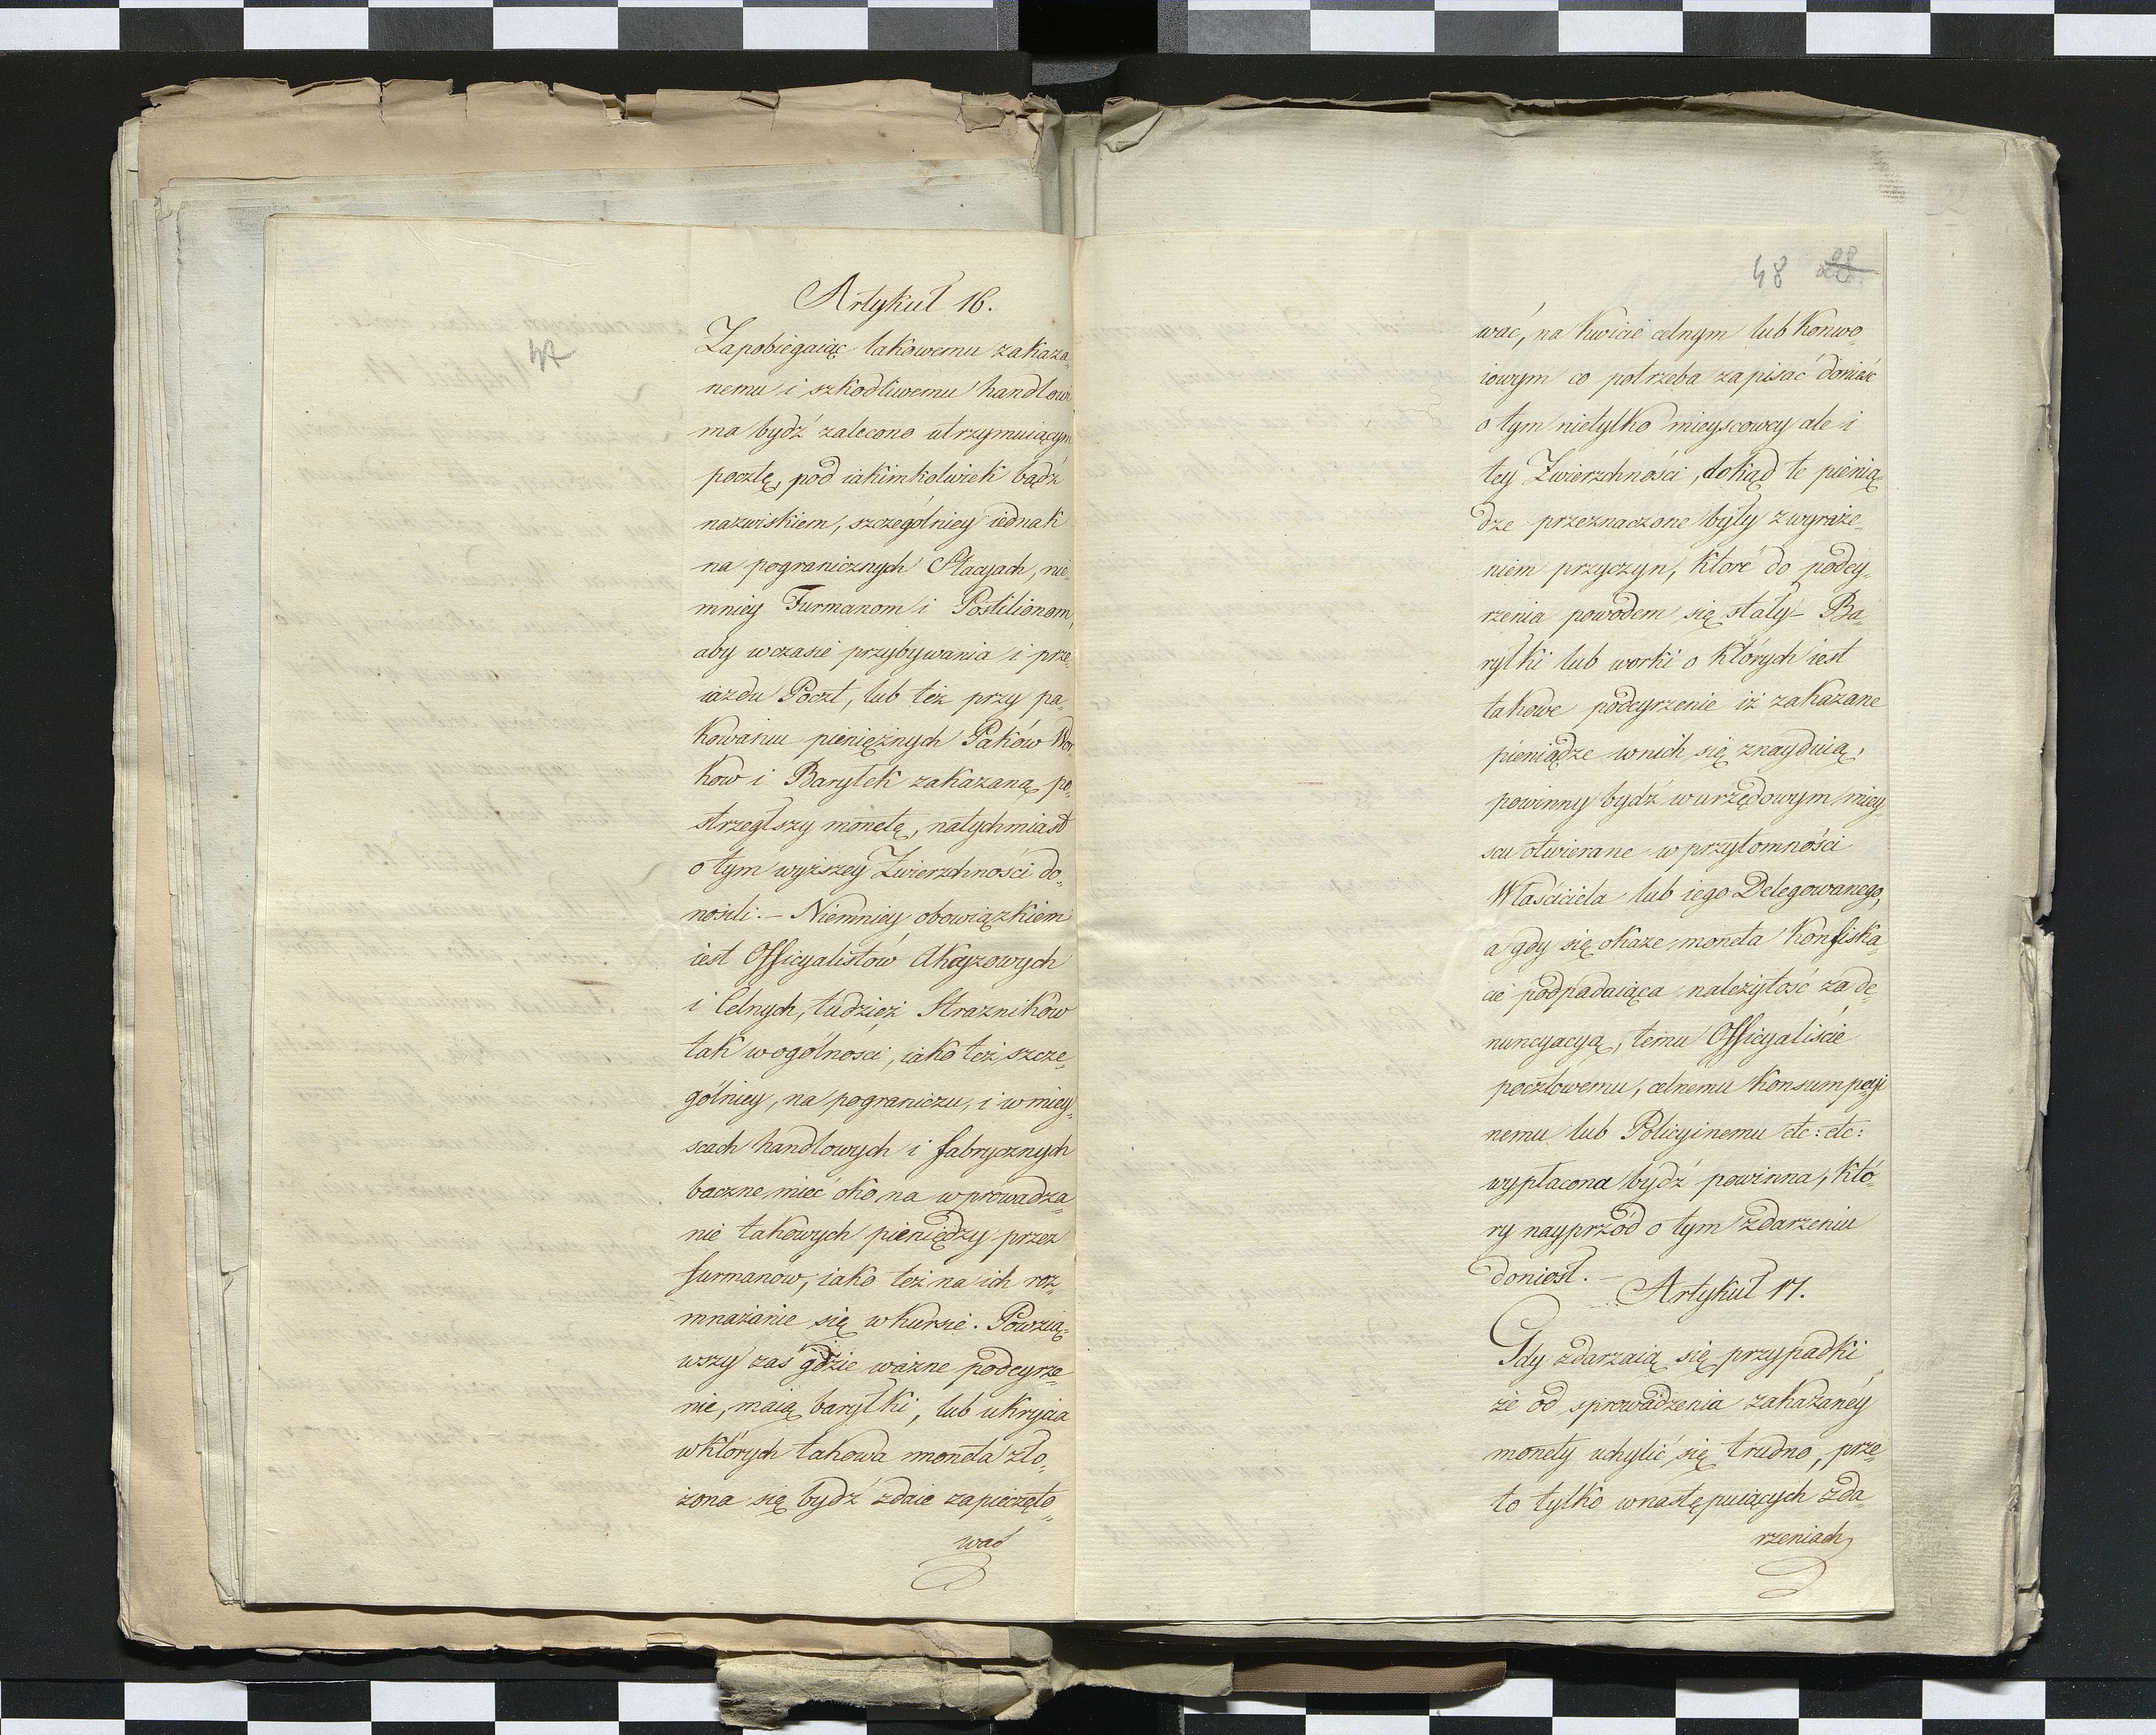 Artykuł 16.
47
Zapobiegaiąc takowemu zakaza„
nemu i szkodliwemu handlowi
ma bydź zalecono utrzymuiącym
pocztę, pod iakimkolwiek bądź
nazwiskiem, szczególniey iednak
na pogranicznych Stacyach, nie„
mniey Furmanom i Postilionom,
aby wczasie przybywania i prze„
iazdu Poczt, lub też przy pa„
kowaniu pieniężnych Paków Wor„
ków i Baryłek zakazaną po„
strzegłszy monetę, natychmiast
o tym wyższey Zwierzchności do„
nosili. – Niemniey obowiązkiem
iest Officyalistów Akcyzowych
i Celnych, tudzież Strażników
tak wogólności, iako też szcze„
gólniey, na pograniczu, i w miey„
scach handlowych i fabrycznych
baczne mieć oko na wprowadza„
nie takowych pieniędzy przez
furmanow, iako też na ich roz„
mnażanie się w kursie. Powzią„
wszy zaś gdzie ważne podeyrze„
nie, maią baryłki, lub ukrycia
w których takowa moneta zło„
żona się bydź zdaie zapieczęto„
wać
48 28
wać, na kwicie celnym lub konwo„
iowym co potrzeba zapisać donieść
o tym nietylko mieyscowey ale i
tey Zwierzchności, dokąd te pienią„
dze przeznaczone były z wyraże„
niem przyczyn, które do podey„
rzenia powodem się stały – Ba„
ryłki lub worki o których iest
takowe podeyrzenie iż zakazane
pieniądze wnich się znayduią,
powinny bydź wurzędowym miey„
scu otwierane w przytomności
Właściciela lub iego Delegowanego,
a gdy się okaze moneta konfiska„
cie podpadaiąca należytość za de„
nuncyacyą, temu Officyaliście
pocztowemu, celnemu konsumpcyi
nemu lub Policyinemu etc: etc:
wypłacona bydź powinna, któ„
ry nayprzód o tym zdarzeniu
doniosł. –
Artykuł 17.
Gdy zdarzaią się przypadki
że od sprowadzenia zakazaney
monety uchylić się trudno, prze„
to tylko wnastępuiących zda„
rzeniach